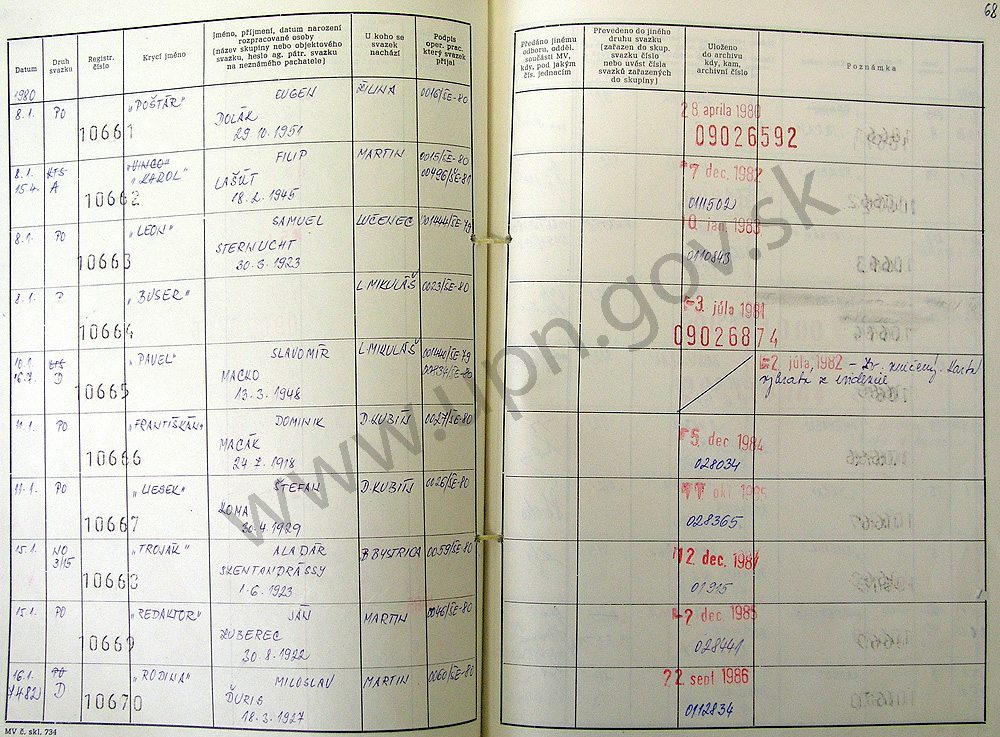 68
Datum
Druh svazku
Registr. číslo
Krycí jméno
Jméno, příjmení, datum narození
rozpracované osoby
(název skupiny nebo objektového
svazku, heslo ag. pátr. svazku
na neznámého pachatele)
U koho se
svazek
nachází
Podpis
oper. prac.
který svazek
přijal
Předáno jinému
odboru, odděl.
součásti MV,
kdy, pod jakým
čís. jednacím
Převedeno do jiného
druhu svazku
(zařazen do skup.
svazku číslo
nebo uvést čísla
svazků zařazených
do skupiny)
Uloženo
do archivu
kdy, kam,
archivní číslo
Poznámka
1980
8.1. PO 10661 "POŠTÁR" EUGEN ŽILINA 0016/ŠE-80
DOLÁK
29.10.1951
28. apríla 1980
09026592
8.1. KTS "VINCO" FILIP MARTIN 0015/ŠE-80
15.4. A 10662 "KAROL" LAŠÚT 00496/ŠE-81
18.2.1945
7 dec. 1982
0111502
8.1. PO 10663 "LEON" SAMUEL LUČENEC 001444/ŠE-79
STERNLICHT
30.3.1923
10. jan. 1983
0110843
8.1. 10664 "BUSER" L. MIKULÁŠ 0023/ŠE-80
-3. júla 1981
09026874
KTS "PAVEL" SLAVOMÍR L. MIKULÁŠ 001440/ŠE-79
D 10665 MACKO
13.3.1948
-2. júla 1982 – zničený. Karta
vybratá z evidencie
11.1. PO 10666 "FRANTIŠKÁN" DOMINIK D. KUBÍN 0027/ŠE-80
MACÁK
24.7.1918
5. dec. 1984
028034
11.1. PO 10667 "LIESEK" ŠTEFAN D. KUBÍN 0026/ŠE-80
30.4.1929
028365
15.1. NO 10668 "TROJÁK" ALADÁR B. BYSTRICA 0059/ŠE-80
3/15 SKENTANDRÁSSY
1.6.1923
12. dec.
01915
15.1. PO 10669 "REDAKTOR" JÁN MARTIN 0046/ŠE-80
ZUBEREC
30.8.1922
dec. 1985
028441
16.1. PO 10670 "RODINA" MILOSLAV MARTIN 0060/ŠE-80
D ĎURIŠ
18.3.1927
22. sept 1986
0112834
MV č. skl. 734
www.upn.gov.sk